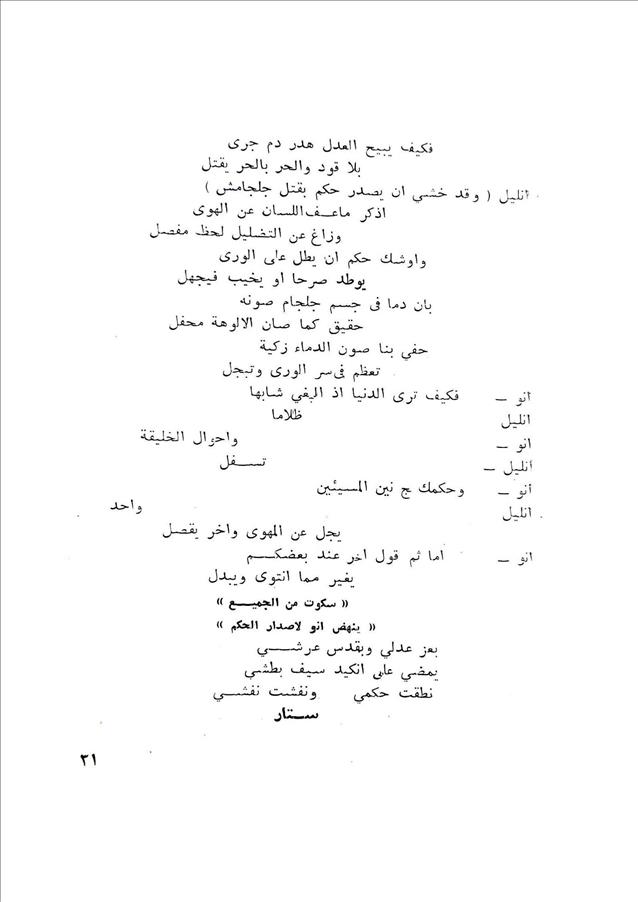 فكيف يبيح العدل هدر دم جرى
بلا قود والحر بالحر يقتل
انليل ( وقد خشي ان يصدر حكم بقتل جلجامش )
اذكر ماعف اللسان عن الهوى
وزاغ عن التضليل لحظ مفصل
واوشك حكم ان يطل على الورى
يوطد صرحا او يخيب فيجهل
بان دما في جسم جلجام صونه
حقيق كما صان الالوهة محفل
حفي بنا صون الدماء زكية
تعظم في سر الورى وتبجل
انو – فكيف ترى الدنيا اذ البغي شابها
انليل ظلاما
انو – واحوال الخليقة
انليل – تسـفل
انو – وحكمك ج نين المسيئين
انليل واحد
يجل عن المهوى واخر يقصل
انو – اما ثم قول اخر عند بعضكـم
يغير مما انتوى ويبدل
« سكوت من الجميـع »
« ينهض انو لاصدار الحكم »
بعز عدلي وبقدس عرشـي
يمضي على انكيد سيف بطشي
نطقت حكمي ونفشت نفشـي
سـتار
٣١